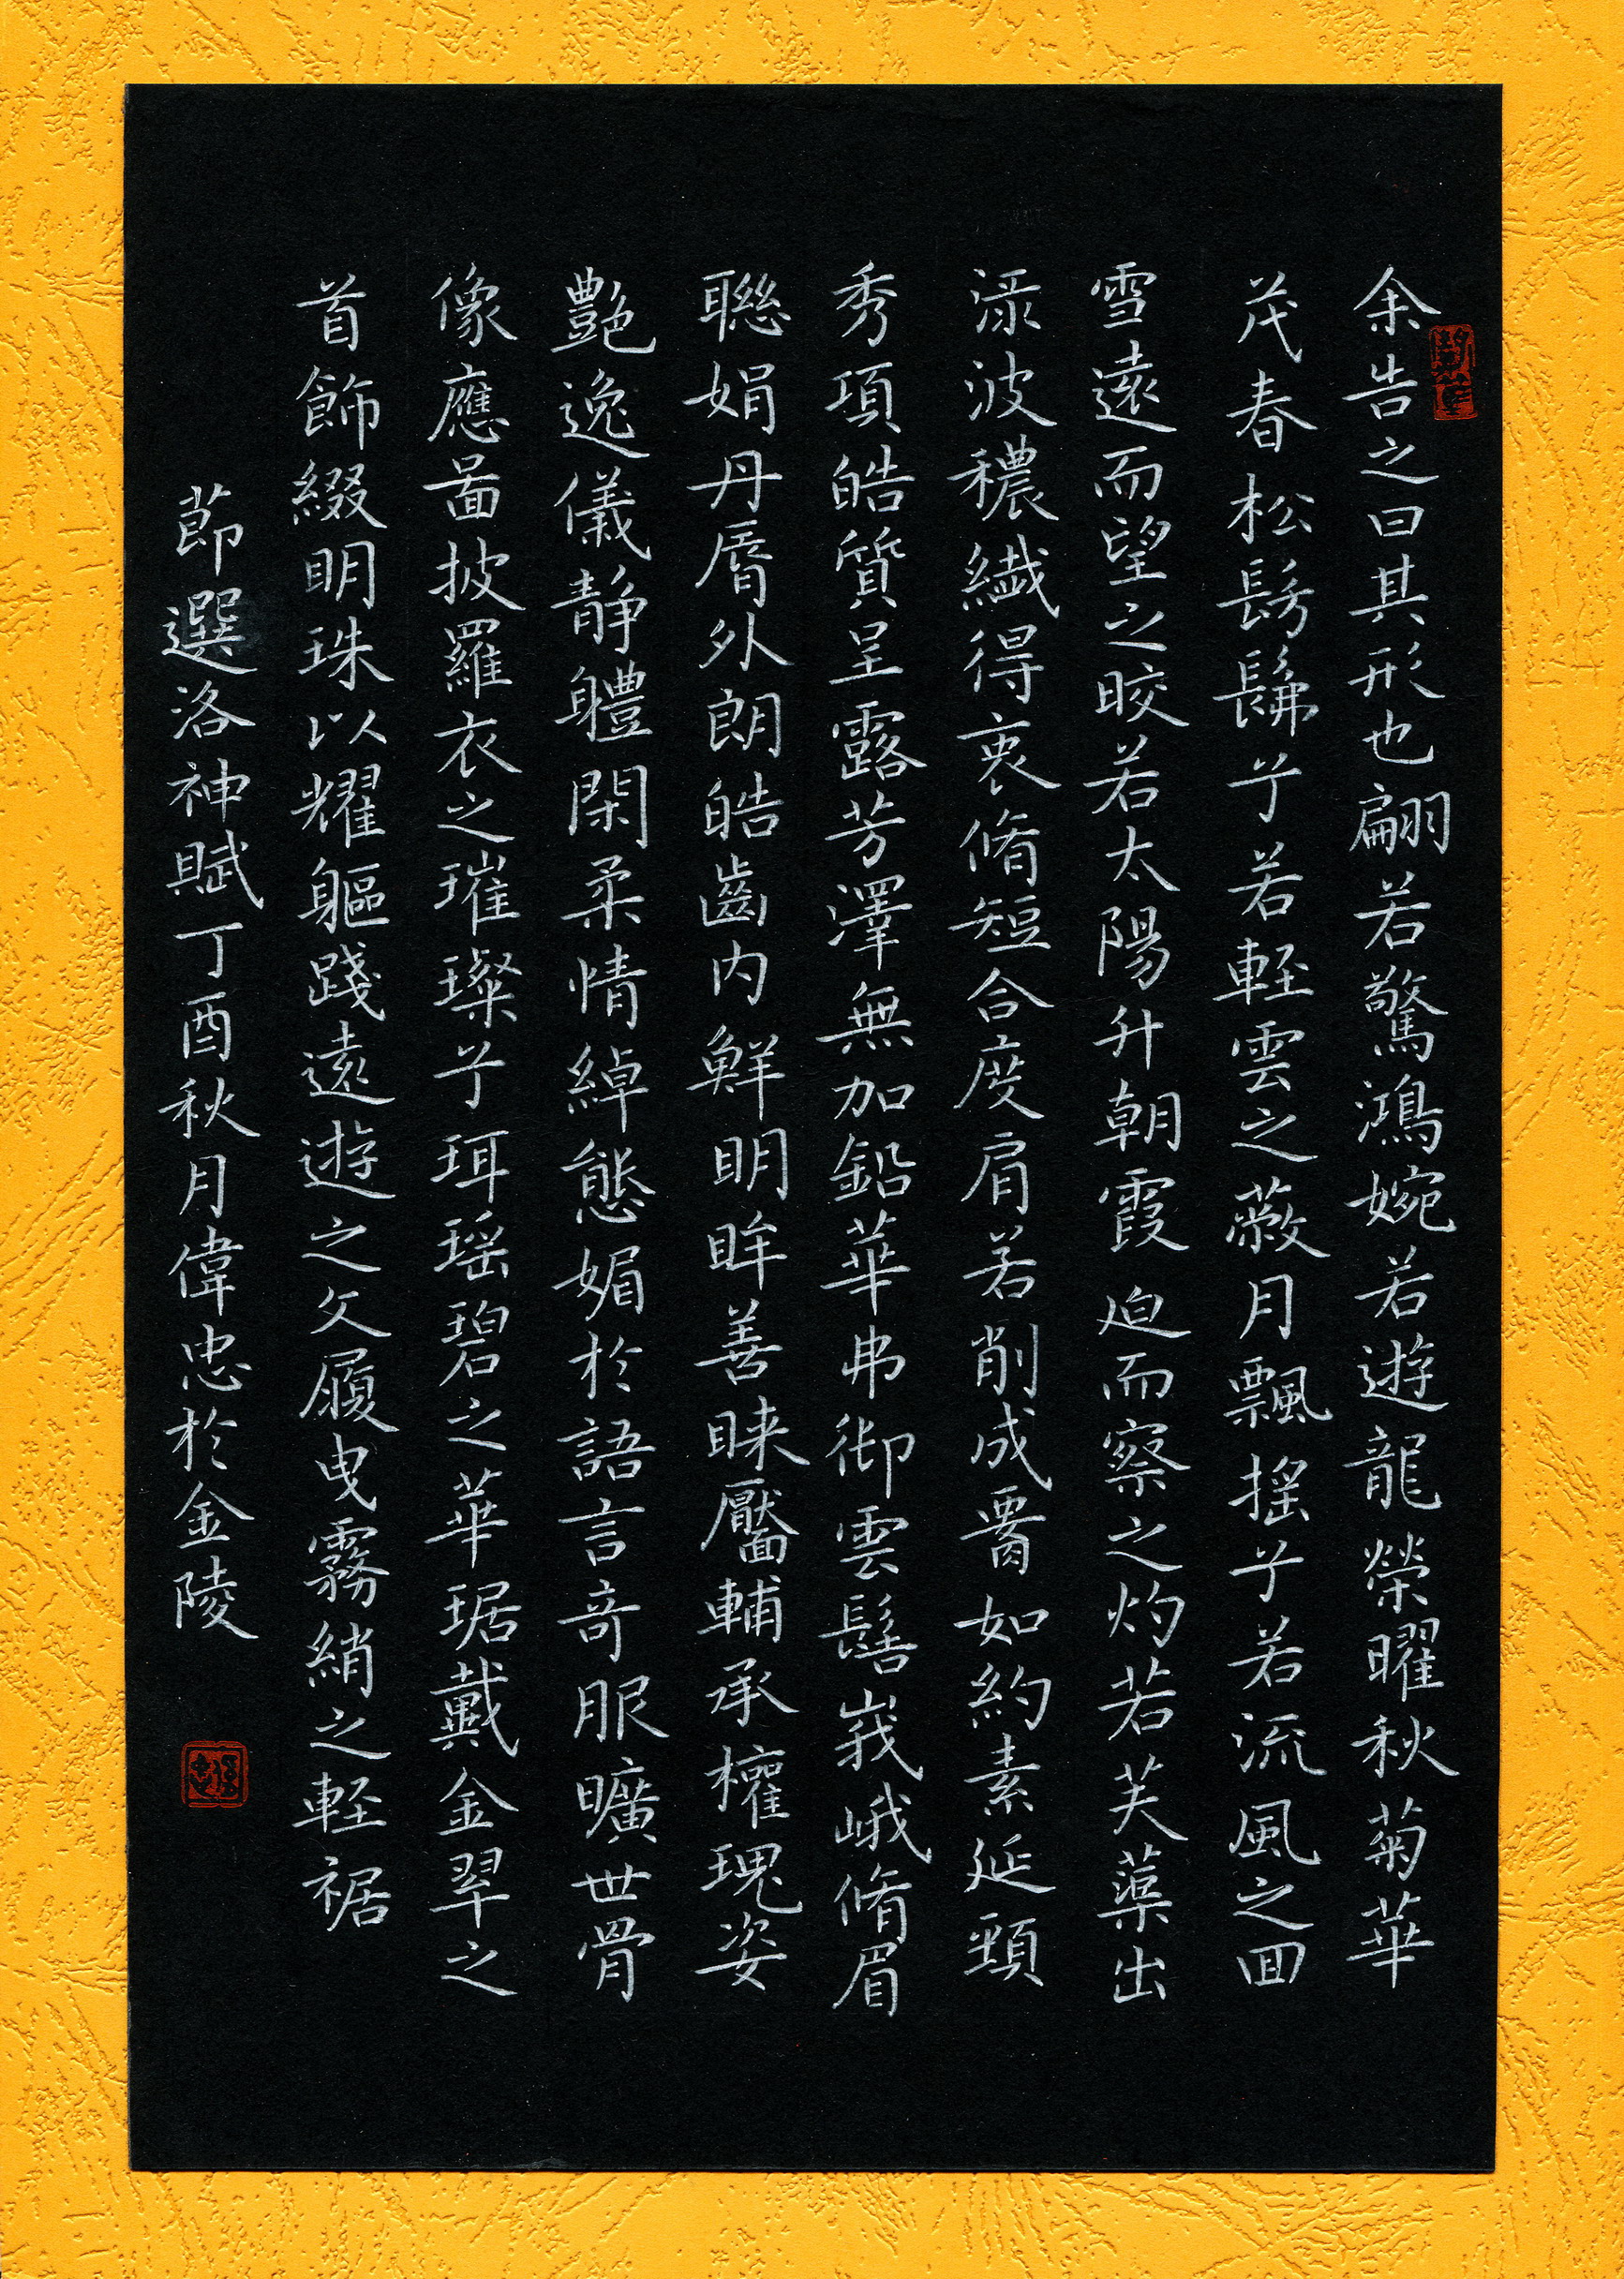 余告之曰其形也翩若驚鴻婉若遊龍榮曜秋菊華
茂春松髣髴兮若輕雲之蔽月飄摇兮若流風之回
雪遠而望之皎若太陽升朝霞迫而察之灼若芙蕖出
淥波穠纖得衷脩短合度肩若削成署如約素延頸
秀項皓質呈露芳澤無加鉛華弗御雲髻峩峨脩眉
聯娟丹脣外朗皓齒內鮮明眸善睞靨輔承權瑰姿
豔逸儀静體閑柔情綽態媚於語言奇服曠世骨
像應圖披羅衣之璀璨兮珥瑶碧之華琚戴金翠之
首飾綴明珠以耀軀踐遠遊之文履曳霧綃之輕裾
節選洛神賦丁酉秋月偉忠於金陵